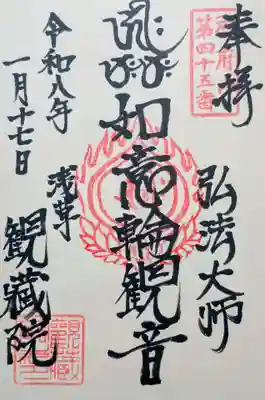 奉拝
第四十五番
弘法大師
如意輪観音
浅草
観藏院
令和八年
一月十七日